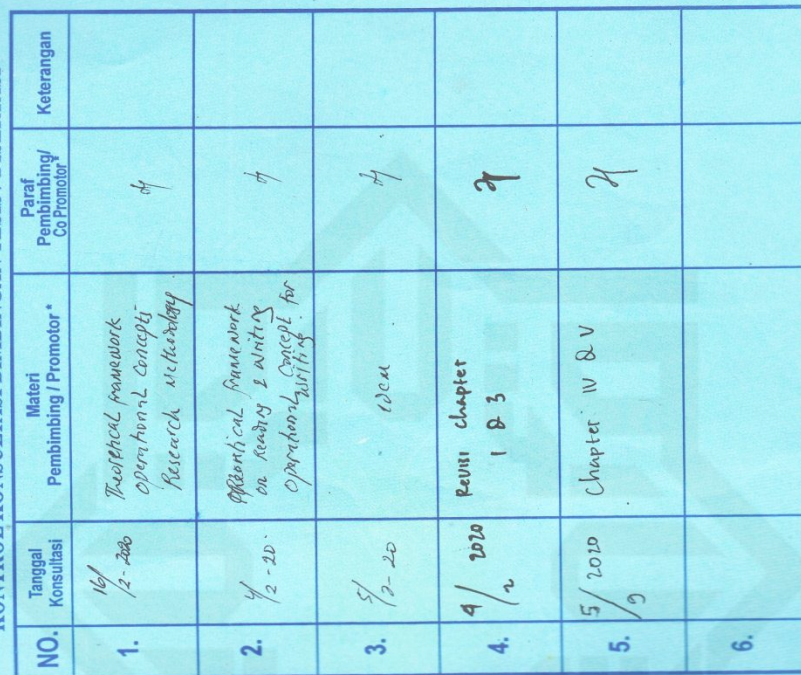 NO.
Tanggal
Konsultasi
Materi
Pembimbing / Promotor *
Paraf
Pembimbing/
Co Promotor*
Keterangan
1.
16/2-2020
Theoretical framework
Operational Concepts
Research Methodology.
2.
4/2-20.
Theoretical framework
on Reading & writing
Operational Concept for
writing.
3.
5/2-20
idem
4.
4/2 2020
Revisi chapter
1 & 3
5.
5/9 2020
Chapter IV & V
6.